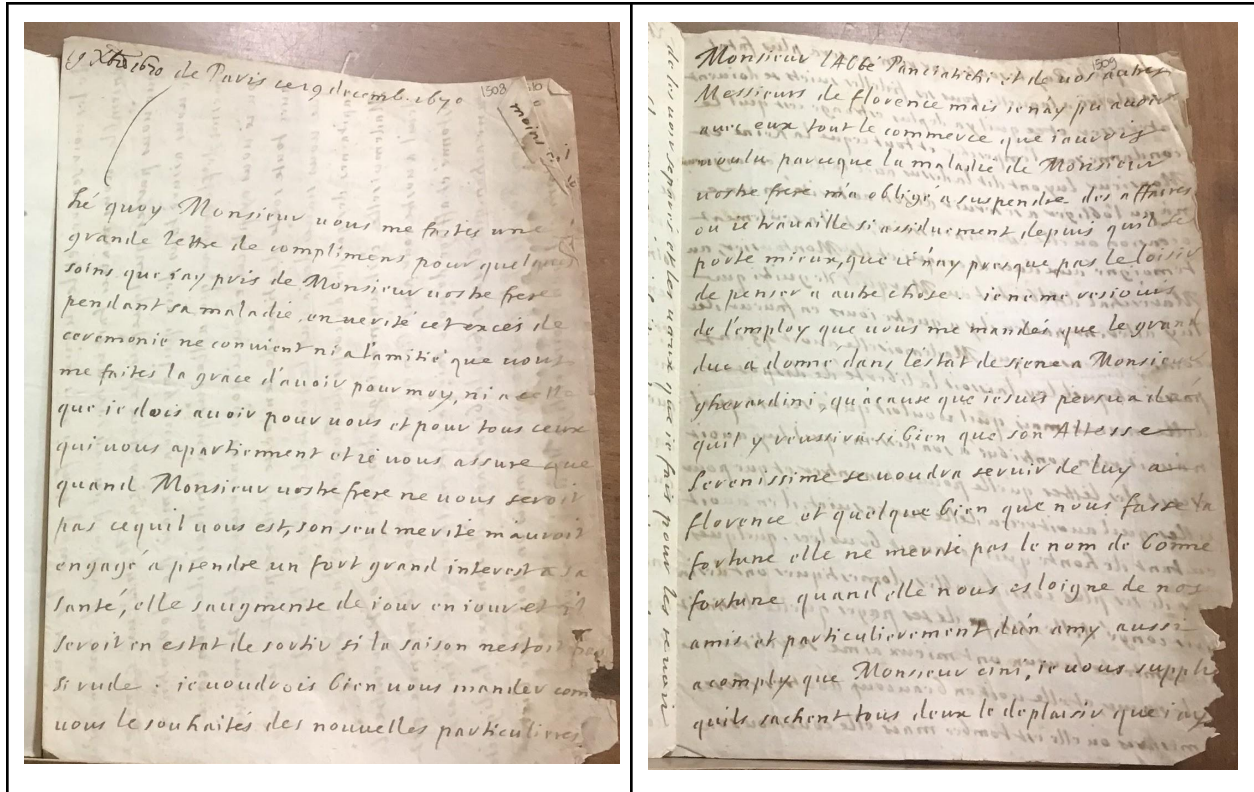 9 Xbre 1670 de Paris ce 19 decemb. 1670
1508
moins
hé quoy Monsieur vous me faites une
grande lettre de complimens pour quelques
soins que i'ay pris de Monsieur vostre frere
pendant sa maladie, en verité cet excés de
ceremonie ne convient ni a l'amitié que vous
me faites la grace d'auoir pour moy, ni a celle
que ie dois auoir pour vous et pour tous ceux
qui vous apartiennent et ie vous assure que
quand Monsieur vostre frere ne vous seroit
pas ce quil vous est, son seul merite m'auroit
engagé a prendre un fort grand interest a sa
santé, elle s'augmente de iour en iour et il
seroit en estat de sortir si la saison nestoit
si rude. ie voudrois bien vous mander com
vous le souhaités des nouvelles particulieres
1509
Monsieur l'Abbé Panciatichi et de vos autres
Messieurs de florence mais ie n'ay pu auoir
auec eux tout le commerce que i'aurois
voulu parceque la maladie de Monsieur
vostre frere m'a obligé a suspendre des affaires
ou ie travaille si assiduement depuis quil se
porte mieux, que ie n'ay presque pas le loisir
de penser a autre chose. ie ne me resiouis
de l'employ que vous me mandés que le grand
duc a donné dans l'estat de siene a Monsieur
gherardini qu'acause que ie suis persuadé
quil y reussira si bien que son Altesse
serenissime se voudra servir de luy a
florence et quelque bien que nous fasse la
fortune elle ne merite pas le nom de bonne
fortune quand elle nous esloigne de nos
amis et particulierement d'un amy aussi
acomply que Monsieur cini, ie vous supplie
quils sachent tous deux le deplaisir que i'ay
de les et les vœux que ie fais pour les revoir